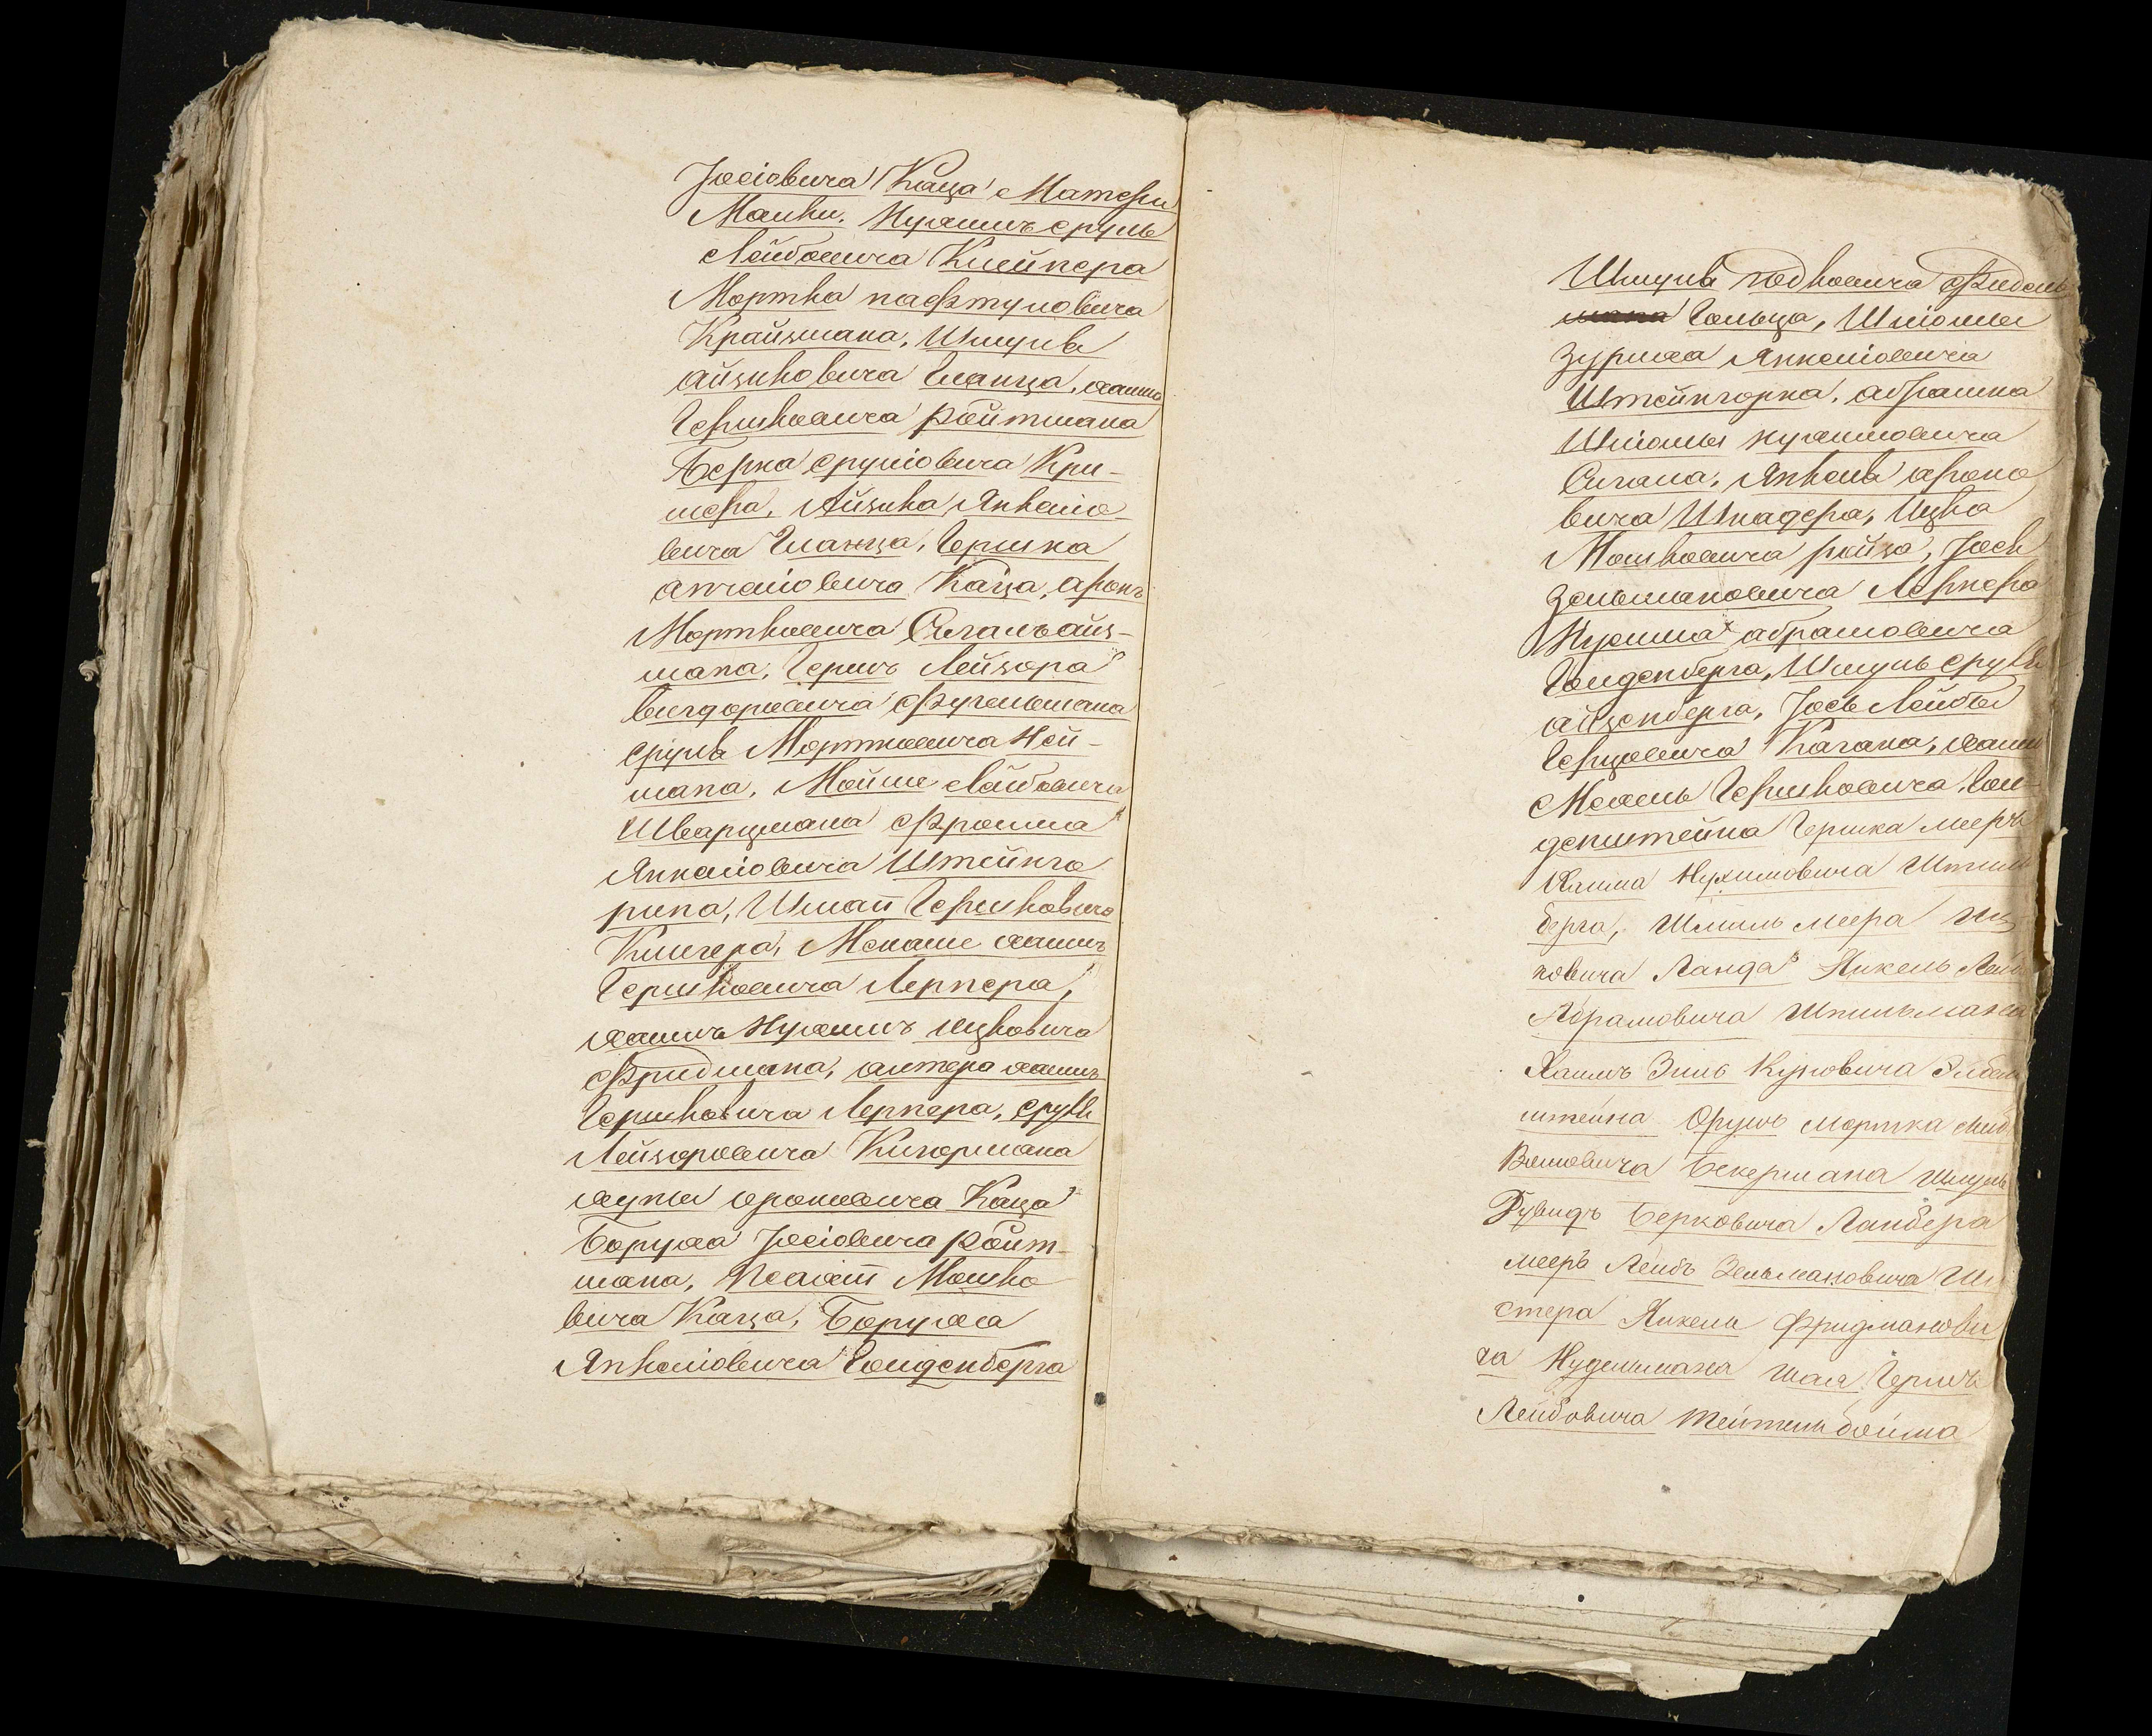 Іосіовича Каца Матери
Манни. Нухимъ Сруль
Лейбовича Клейпера
Мортка Нафтуловича
Крайзмана, Шмуль
Айзиковича Гланца, Хаимъ
Гершковича Ройтмана
Берка Сруліовича Кри-
мера, Айзика Янкеліо-
вича Гланца, Гершка
Анчеліовича Каца, Аронъ
Мортковича Сигальайз-
мана, Гершъ Лейзора
Вигдоровича Фугельмана
Сруль Мортковича Ней-
мана, Мойше Лейбовича
Шварцмана Фроима
Янкеліовича Штейнго
рина, Шмай Гершковича
Клигера, Менаше Хаимъ
Гершковича Лернера,
Хаимъ Нухимъ Ицковича
Фридмана, Алтера Хаимъ
Гершковича Лернера, Сруль
Лейзоровича Кигормана
Хуны Ароновича Каца
Боруха Іосіовича Ройт-
мана, Мошко
вича Каца, Боруха
Янкеліовича Голденберга
Шмуль Фидель
мана Гольца, Шліомы
Зурыха Янкеліовича
Штейнгорна, Абрамка
Шліомы Нухимовича
Сигала, Янкель Ароно
вича Шнадера, Ицка
Мошковича Ройза, Іось
Зельмановича Лернера
Нухима Абрамовича
Голденберга, Шмуль Сруль
Айзенберга, Іось Лейбы
Герцовича Кагана, Хаимъ
Мехель Гершковича, Гол-
денштейна Гершка Меера
Хаима Нухимовича Штил
берга, Шмиль Меера Иц
ковича Ланда Янкель Лейб
Абрамовича Штильмана
Хаимъ Зиль Куповича Эйдель
штейна Сруль Мортка Лейб
Волковича Бекермана Шмуль
Рувидъ Берковича Ландера
Мееръ Лейбъ Зельмановича Ши
стера Янкель Фридманови
ча Нудельмана Шая Гершъ
Лейбовича Тейтельбойма